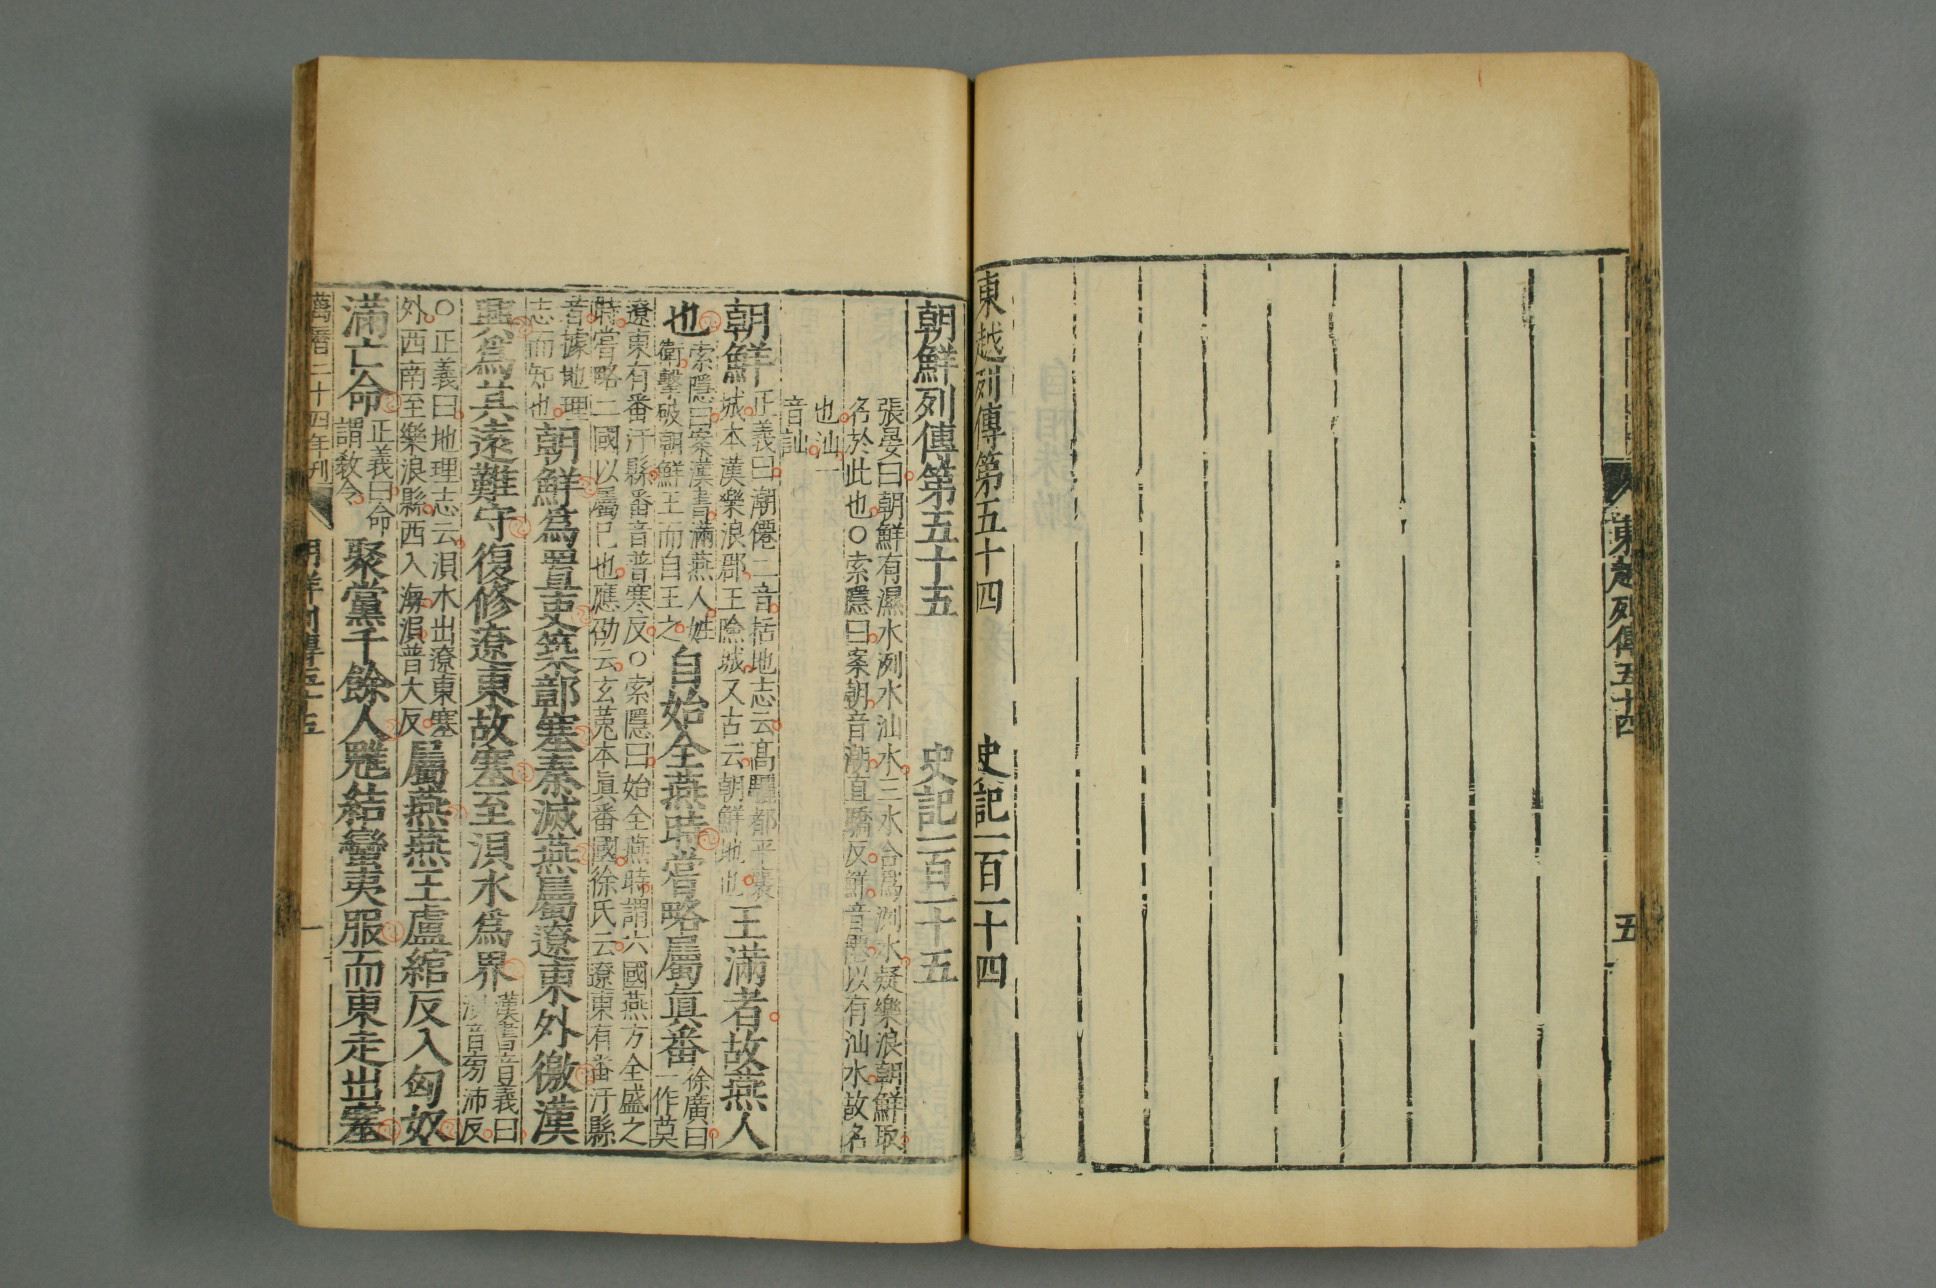 東越列傳五十四
五
東越列傳第五十四 史記一百一十四
朝鮮列傳第五十五 史記一百一十五
張晏曰朝鮮有濕水洌水汕水三水合爲洌水疑樂浪朝鮮取
名於此也○索隱曰案朝音潮直驕反鮮音僊以有汕水故名
也汕一
音訕
朝鮮
正義曰潮僊二音括地志云高驪都平壤
城本漢樂浪郡王險城又古云朝鮮地也
王滿者故燕人
也
索隱曰案漢書滿燕人姓
衛擊破朝鮮王而自王之
自始全燕時嘗略屬眞番
徐廣曰
一作莫
遼東有番汗縣番音普寒反○索隱曰始全燕時謂六國燕方全盛之
時嘗略二國以屬已也應劭云玄菟本眞番國徐氏云遼東有番汗縣
音據地理
志而知也
朝鮮爲置吏築鄣塞秦滅燕屬遼東外徼漢
興爲其遠難守復修遼東故塞至浿水爲界
漢書音義曰
浿音旁沛反
○正義曰地理志云浿水出遼東塞
外西南至樂浪縣西入海浿普大反
屬燕燕王盧綰反入匈奴
滿亡命
正義曰命
謂敎令
聚黨千餘人魋結蠻夷服而東走出塞
萬曆二十四年刊
朝鮮列傳五十五
一